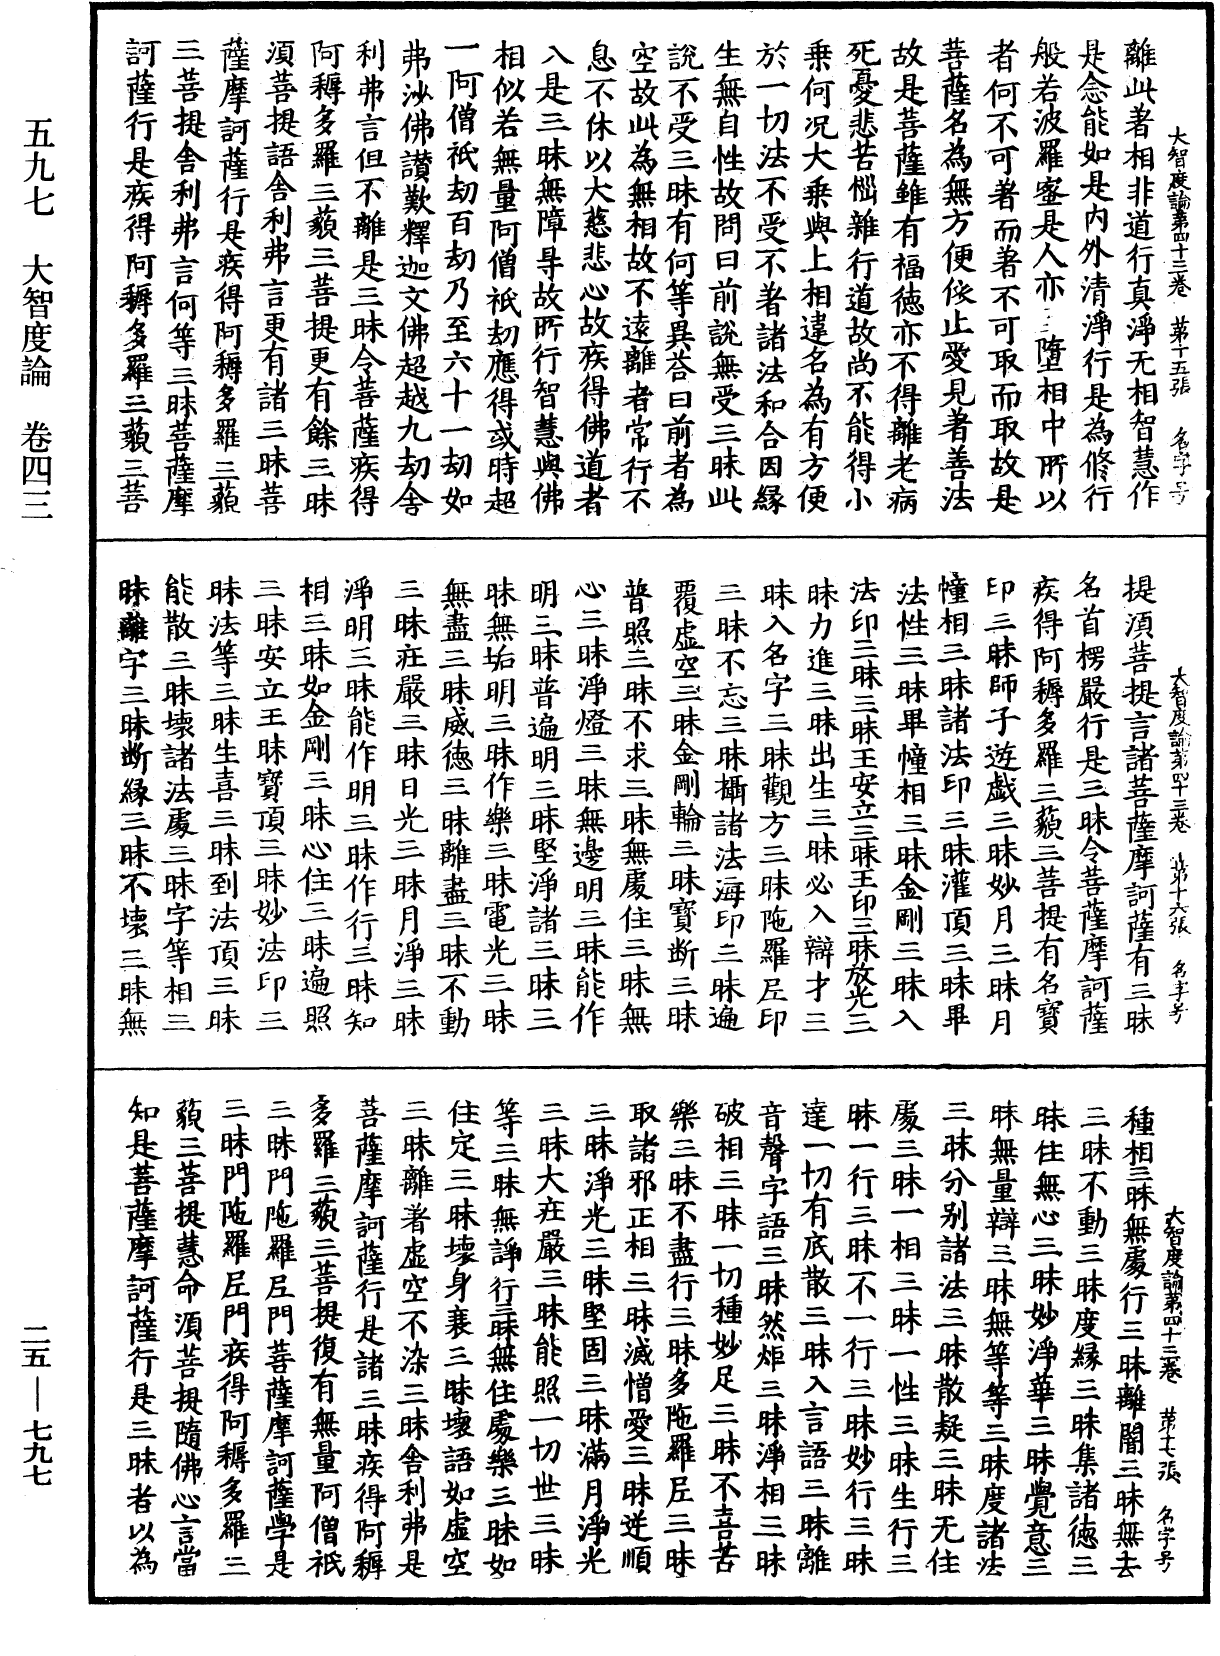 五九七　大智度論　卷四三
大智度論第四十三卷　第十五張　名字号
離此著相非道行真淨无相智慧作
是念能如是內外清淨行是為脩行
般若波羅蜜是人亦墮相中所以
者何不可著而著不可取而取故是
菩薩名為無方便依止愛見著善法
故是菩薩雖有福德亦不得離老病
死憂悲苦惱雜行道故尚不能得小
乘何況大乘與上相違名為有方便
於一切法不受不著諸法和合因緣
生無自性故問曰前說無受三昧此
說不受三昧有何等異荅曰前者為
空故此為無相故不遠離者常行不
息不休以大慈悲心故疾得佛道者
入是三昧無障㝵故所行智慧與佛
相似若無量阿僧祇劫應得或時超
一阿僧祇劫百劫乃至六十一劫如
弗沙佛讃歎釋迦文佛超越九劫舍
利弗言但不離是三昧令菩薩疾得
阿耨多羅三藐三菩提更有餘三昧
湏菩提語舍利弗言更有諸三昧菩
薩摩訶薩行是疾得阿耨多羅三藐
三菩提舍利弗言何等三昧菩薩摩
訶薩行是疾得阿耨多羅三藐三菩
大智度論第四十三卷　第十六張　名字号
提湏菩提言諸菩薩摩訶薩有三昧
名首楞嚴行是三昧令菩薩摩訶薩
疾得阿耨多羅三藐三菩提有名寶
印三昧師子遊戲三昧妙月三昧月
幢相三昧諸法印三昧灌頂三昧畢
法性三昧畢幢相三昧金剛三昧入
法印三昧三昧王安立三昧王印三昧放光三
昧力進三昧出生三昧必入辯才三
昧入名字三昧觀方三昧陁羅尼印
三昧不忘三昧攝諸法海印三昧遍
覆虛空三昧金剛輪三昧寶断三昧
普照三昧不求三昧無處住三昧無
心三昧淨燈三昧無邊明三昧能作
明三昧普遍明三昧堅淨諸三昧三
昧無垢明三昧作樂三昧電光三昧
無盡三昧威德三昧離盡三昧不動
三昧莊嚴三昧日光三昧月淨三昧
淨明三昧能作明三昧作行三昧知
相三昧如金剛三昧心住三昧遍照
三昧安立王昧寶頂三昧妙法印三
昧法等三昧生喜三昧到法頂三昧
能散三昧壞諸法處三昧字等相三
昧離字三昧断緣三昧不壞三昧無
大智度論第四十三卷　第十七張　名字号
種相三昧無處行三昧離闇三昧無去
三昧不動三昧度緣三昧集諸德三
昧住無心三昧妙淨華三昧覺意三
昧無量辯三昧無等等三昧度諸法
三昧分別諸法三昧散疑三昧无住
處三昧一相三昧一性三昧生行三
昧一行三昧不一行三昧妙行三昧
達一切有底散三昧入言語三昧離
音聲字語三昧然炬三昧淨相三昧
破相三昧一切種妙足三昧不喜苦
樂三昧不盡行三昧多陁羅尼三昧
取諸邪正相三昧滅憎愛三昧逆順
三昧淨光三昧堅固三昧滿月淨光
三昧大莊嚴三昧能照一切世三昧
等三昧無諍行三昧無住處樂三昧如
住定三昧壞身衰三昧壞語如虛空
三昧離著虛空不染三昧舍利弗是
菩薩摩訶薩行是諸三昧疾得阿耨
多羅三藐三菩提復有無量阿僧祇
三昧門陁羅尼門菩薩摩訶薩學是
三昧門陁羅尼門疾得阿耨多羅三
藐三菩提慧命湏菩提隨佛心言當
知是菩薩摩訶薩行是三昧者以為
二五——七九七